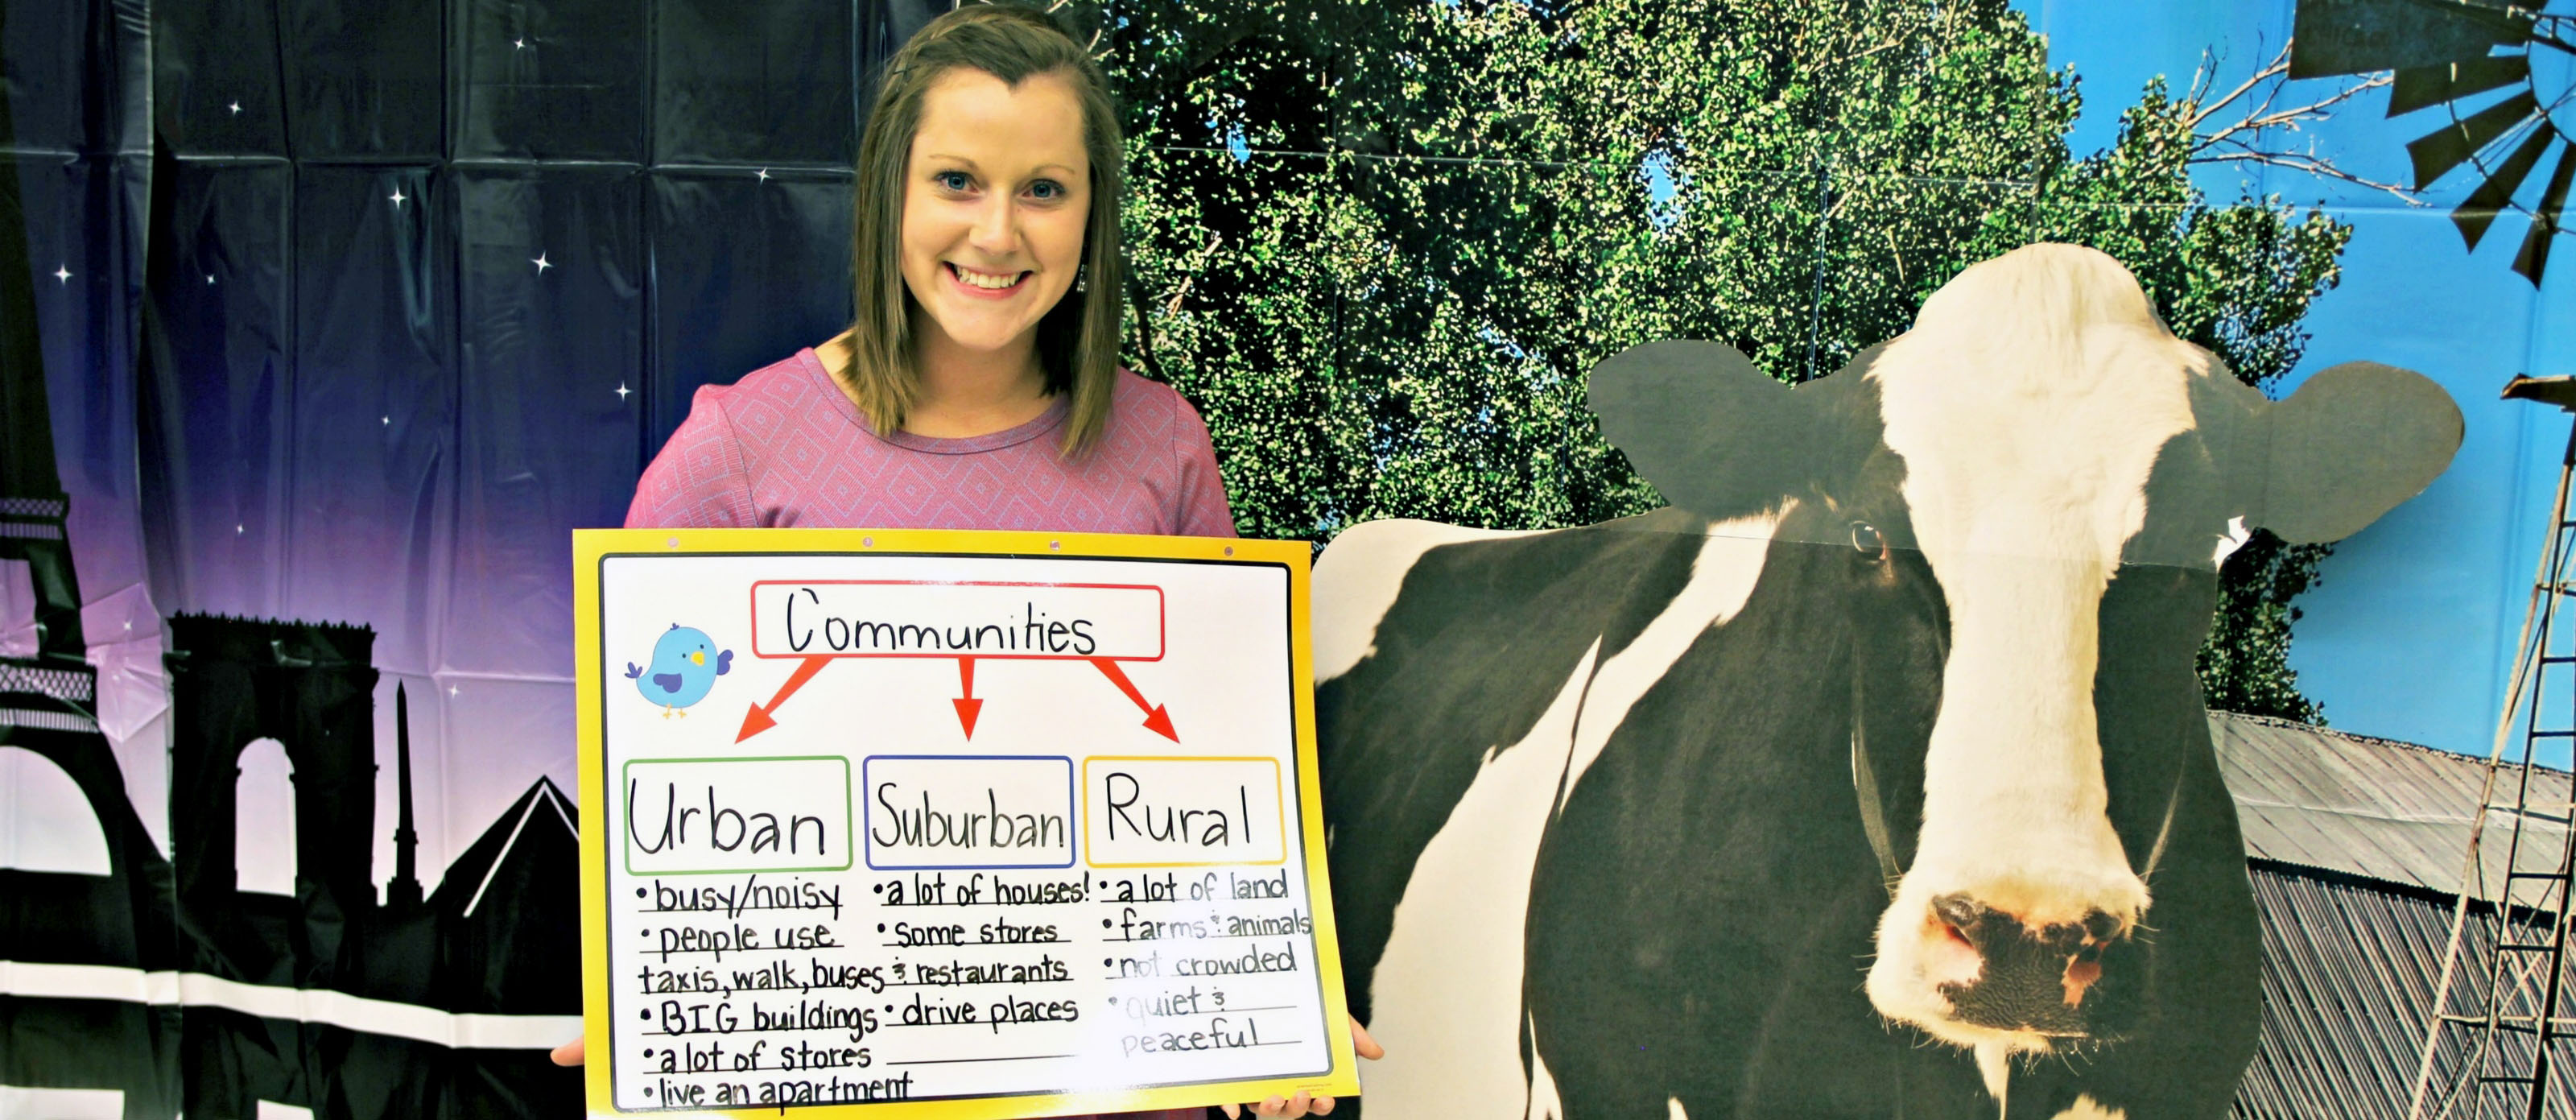 Communities
Urban
Suburban
Rural
• busy/noisy
• people use
taxis, walk, buses
• BIG buildings
• a lot of stores
• live an apartment
• a lot of houses!
• some stores
& restaurants
• drive places
• a lot of land
• farms & animals
• not crowded
• quiet &
peaceful